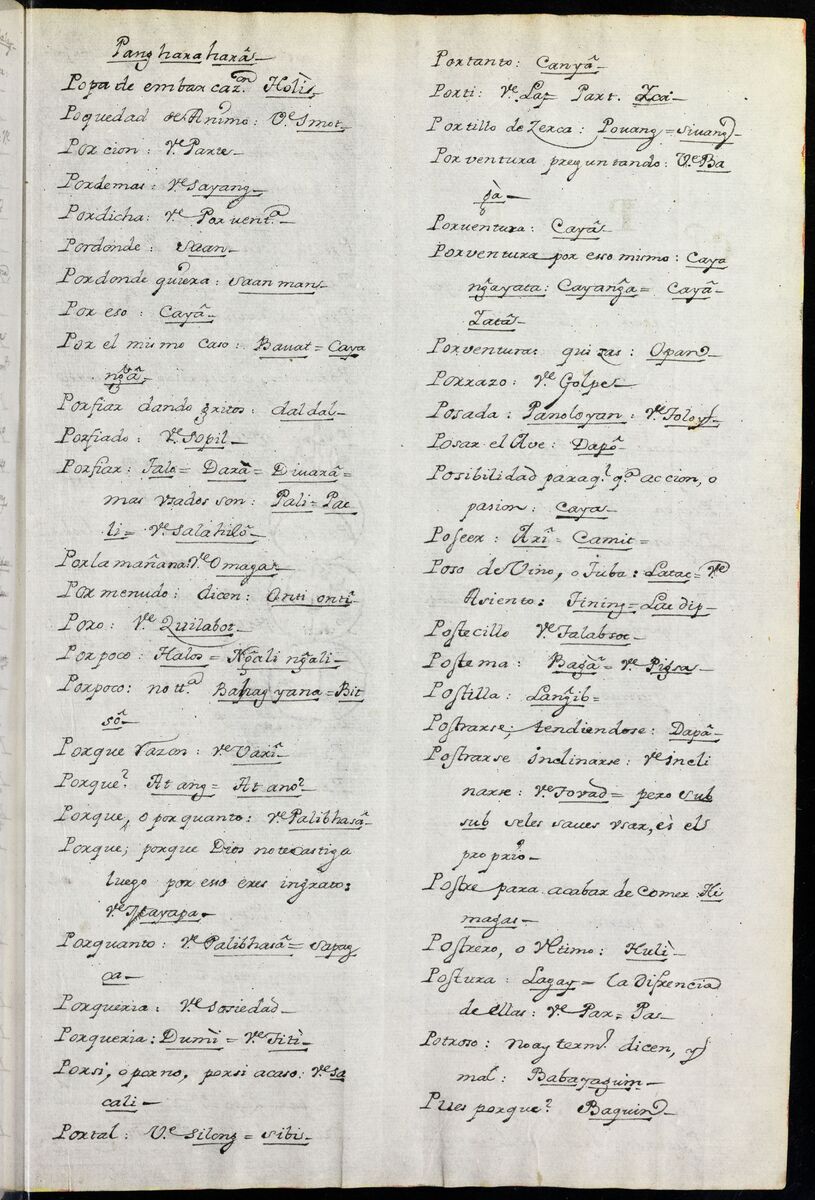 Pang harahara^
Popa de embarcaz.on Holìs
Poquedad de Animo: V.e Imot,
Porcion: V.e Parte
Pordemas: V.e Sayang
Pordicha: V.e Porvent.a
Pordonde: Saan
Pordonde quiera: Saan man
Por eso: Cayâ
Por el mismo caso: Bauat = Caya
ngâ,
Porfiar dando gritos: daldal
Porfiado: V.e Sopil
Porfiar: Talo = Darà = Diuarâ =
mas vsados son: Pali = Pac
li = V.e Salahilô
Porla mañana: V.e Omaga
Por menudo: dicen: Onti ontî
Poro: V.e Quilabot
Por poco: Halos = Ngãli ngãli
Porpoco: no tt.a Bahag yana = Bit
sô
Porque razon: V.e Varî
Porque? At ang = At ano?
Porque, o por quanto: V.e Palibhasâ
Porque; porque Dios notecastiga
luego por esso eres ingrato:
V.e Mayapa
Porquanto: V.e Palibhasâ = Sapag
ca
Porqueria: V.e Sosiedad
Porqueria: Dumì = V.e Titì
Porsi, o porno, porsi acaso: V.e Sa
cali
Portal: V.e Silong = Sibi
Portanto: Canyâ
Porti: V.e Laz Part. Zori
Portillo de Zerca: Pouang = Siuang
Porventura preguntando: V.e Ba
gà
Porventura: Cayâ
Porventura por esso mismo: Caya
ngãyata: Cayangã = Cayâ
Zatâ
Porventura: quizas: Opan
Porrazo: V.e Golpe
Posada: Panoloyan: V.e Toloy
Posar el Ave: Dapô
Posibilidad paraq.e q.a accion, o
pasion: Caya
Poseer: Arî = Camit =
Poso de Vino, o Tuba: Latac = V.e
Asiento: Tining = Lac dip
Postecillo V.e Talabsoc
Postema: Bagâ = V.e Pigsa
Postilla: Langîb =
Postrarse; tendiendose: Dapâ
Postrarse inclinarse: V.e incli
narse: V.e Tovad = pero sub
sub seles saues vsar, es el
proprio
Postre para acabar de comer Hi
magas
Postrero, o Vltimo: Hulì
Postura: Lagay = la Difrencia
de ellas: V.e Par = Pas
Potroso: noay term.o dicen, y
mal: Babayaguin
Pues porque? Baquin